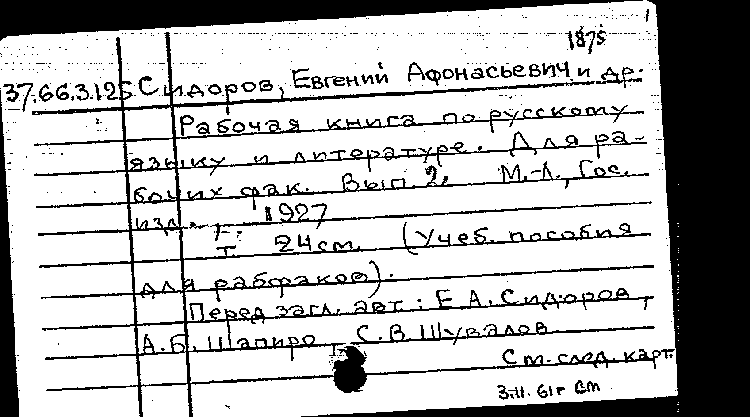 1875
37.66.3.125 Сидоров, Евгений Афонасьевич и др.
Рабочая книга по русскому
языку и литературе. Для ра-
бочих фак. Вып. 2. М.-Л., Гос.
изд., 1927
24 см. (Учеб. пособия
для рабфаков).
Перед загл. авт.: Е.А. Сидоров,
А.Б. Шапиро, С.В. Шувалов
См. след. карт.
3.11.61г ВМ